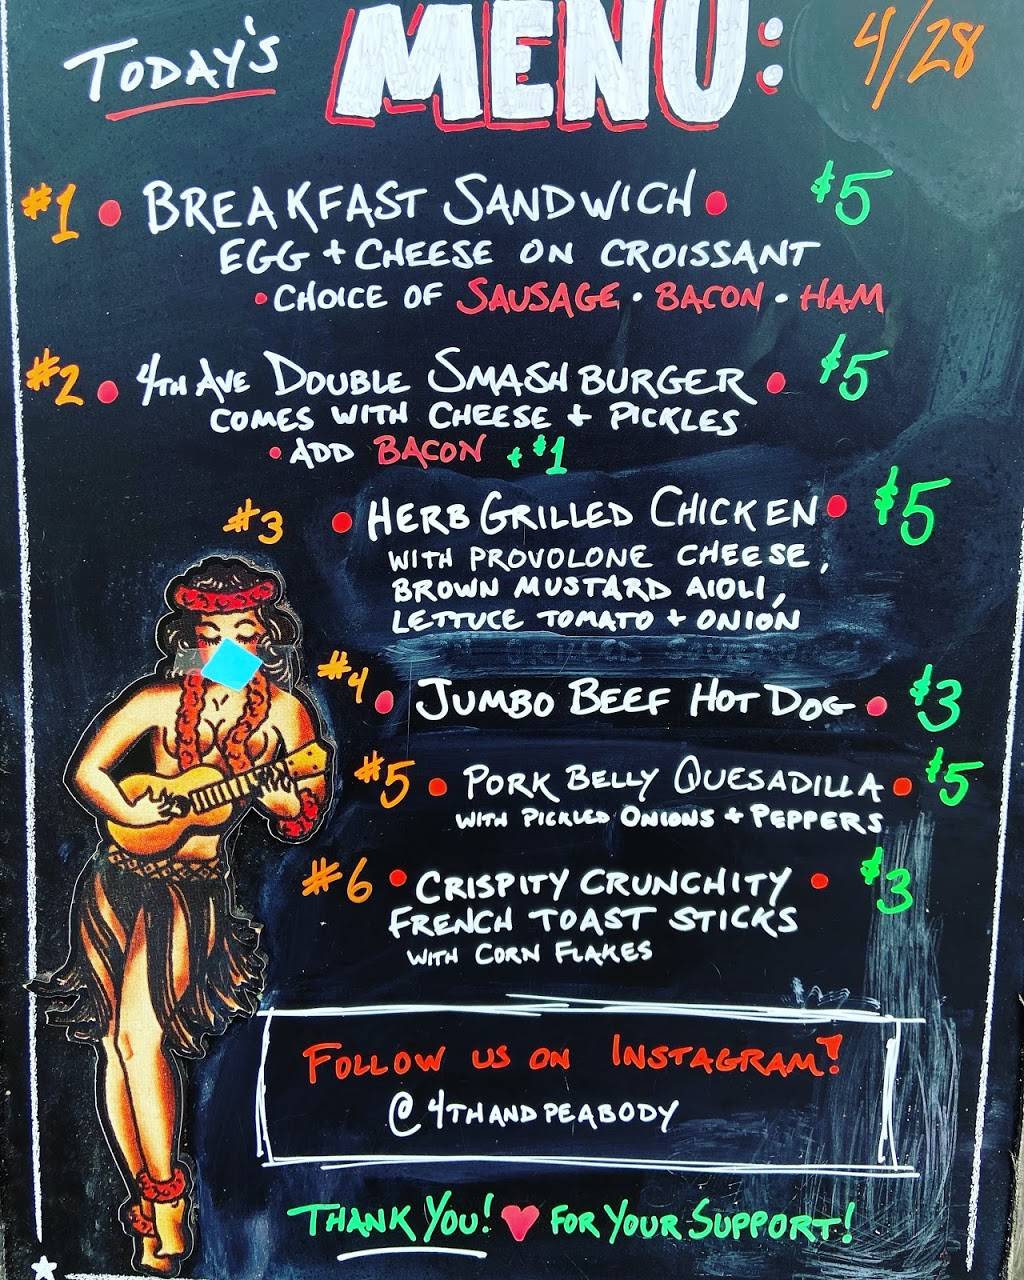 TODAY'S MENU: 4/28
#1 • BREAKFAST SANDWICH • $5
EGG + CHEESE ON CROISSANT
• CHOICE OF SAUSAGE • BACON • HAM
#2 • 4TH AVE DOUBLE SMASH BURGER • $5
COMES WITH CHEESE + PICKLES
• ADD BACON + $1
#3 • HERB GRILLED CHICKEN • $5
WITH PROVOLONE CHEESE,
BROWN MUSTARD AIOLI,
LETTUCE TOMATO + ONION
#4 • JUMBO BEEF HOT DOG • $3
#5 • PORK BELLY QUESADILLA • $5
WITH PICKLED ONIONS + PEPPERS
#6 • CRISPITY CRUNCHITY • $3
FRENCH TOAST STICKS
WITH CORN FLAKES
FOLLOW US ON INSTAGRAM!
@4THANDPEABODY
THANK YOU! ♥ FOR YOUR SUPPORT!